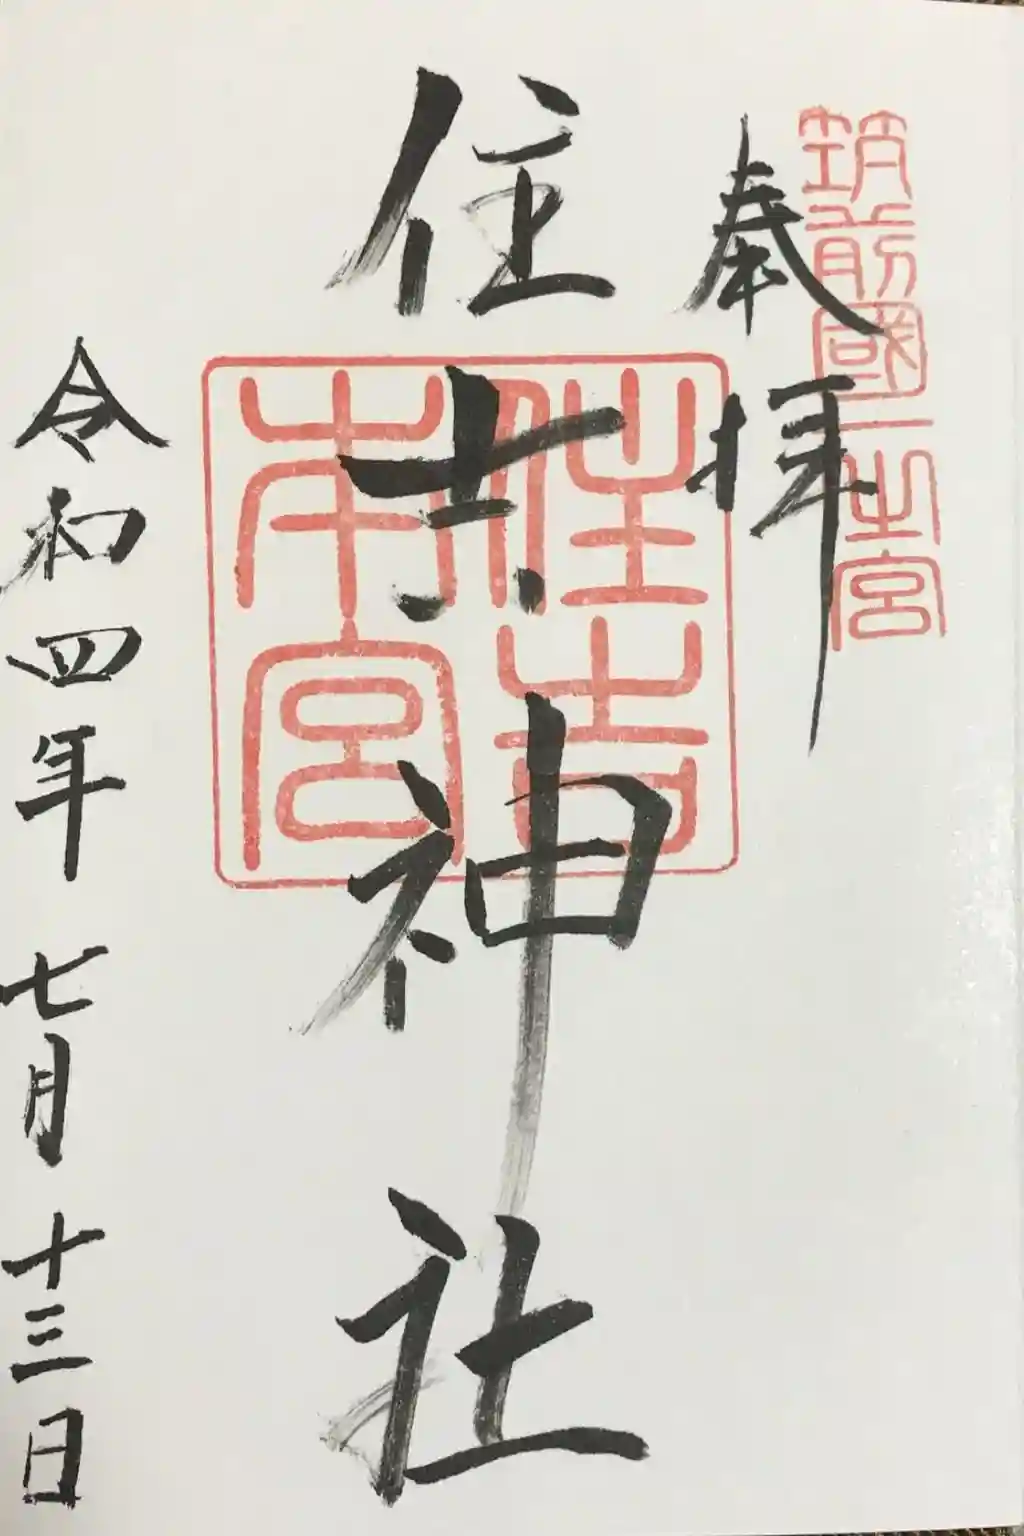 筑前國一之宮
奉拝
住吉神社
住吉
本宮
令和四年七月十三日